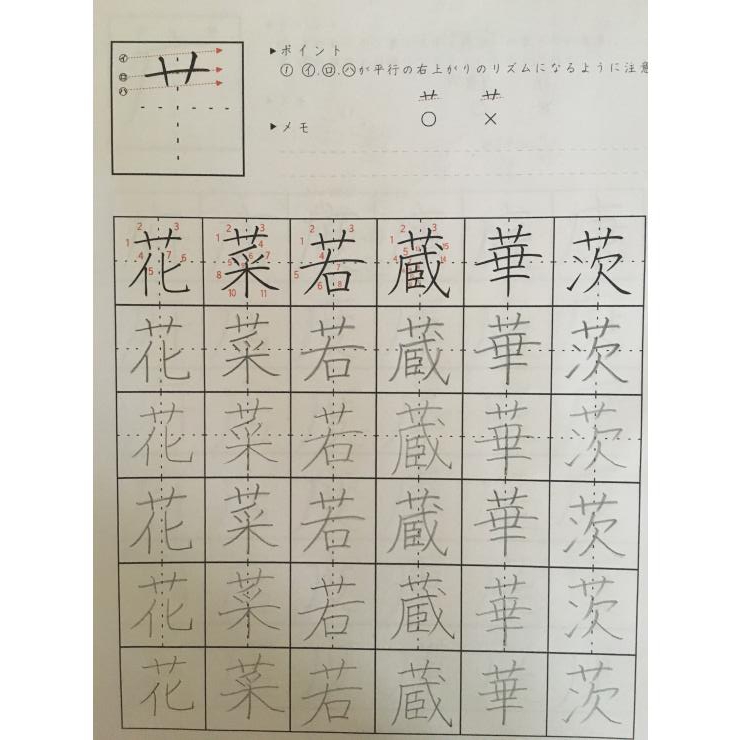 ㋑
㋺
㋩
艹
▶ポイント
① ㋑.㋺.㋩が平行の右上がりのリズムになるように注意
艹 艹
○ ×
▶メモ
花 菜 若 蔵 華 茨
花 菜 若 蔵 華 茨
花 菜 若 蔵 華 茨
花 菜 若 蔵 華 茨
花 菜 若 蔵 華 茨
花 菜 若 蔵 華 茨